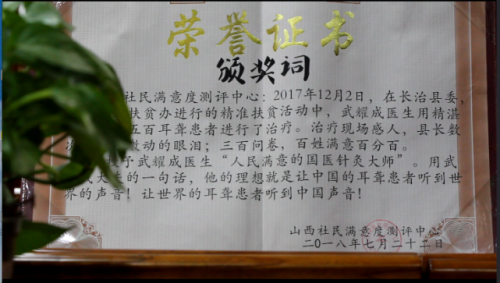 荣誉证书
颁奖词
社民满意度测评中心：2017年12月2日，在长治县委，
扶贫办进行的精准扶贫活动中，武耀成医生用精湛
五百耳聋患者进行了治疗。治疗现场感人，县长数
激动的眼泪；三百问卷，百姓满意百分百。
予武耀成医生“人民满意的国医针灸大师”。用武
的一句话，他的理想就是让中国的耳聋患者听到世
界的声音！让世界的耳聋患者听到中国声音！
山西社民满意度测评中心
二〇一八年七月二十二日